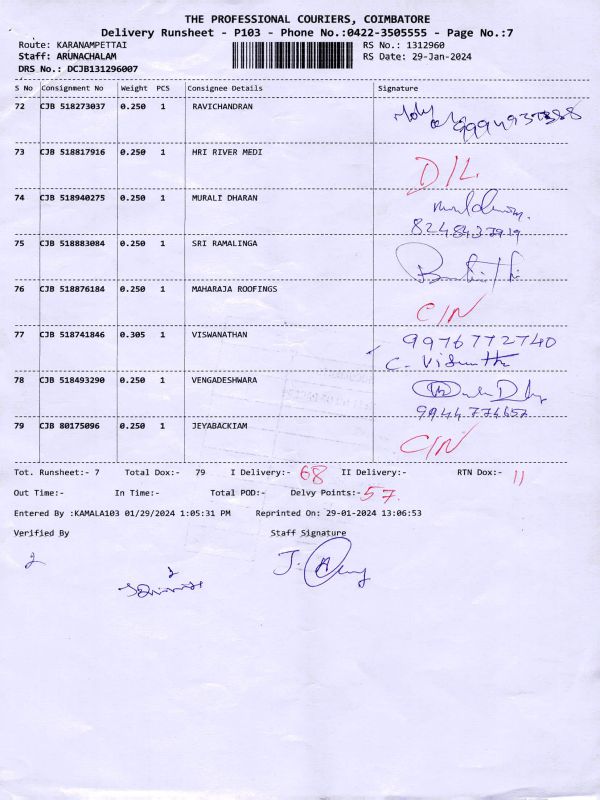 THE PROFESSIONAL COURIERS, COIMBATORE
Delivery Runsheet - P103 - Phone No.:0422-3505555 - Page No.:7
Route: KARANAMPETTAI RS No.: 1312960
Staff: ARUNACHALAM RS Date: 29-Jan-2024
DRS No.: DCJB131296007
S No Consignment No Weight PCS Consignee Details Signature
72 CJB 518273037 0.250 1 RAVICHANDRAN
73 CJB 518817916 0.250 1 HRI RIVER MEDI D/L
74 CJB 518940275 0.250 1 MURALI DHARAN
75 CJB 518883084 0.250 1 SRI RAMALINGA
76 CJB 518876184 0.250 1 MAHARAJA ROOFINGS C/N
77 CJB 518741846 0.305 1 VISWANATHAN 9976772740
78 CJB 518493290 0.250 1 VENGADESHWARA
79 CJB 80175096 0.250 1 JEYABACKIAM C/N
Tot. Runsheet:- 7 Total Dox:- 79 I Delivery:- 68 II Delivery:- RTN Dox:- 11
Out Time:- In Time:- Total POD:- Delvy Points:- 57.
Entered By :KAMALA103 01/29/2024 1:05:31 PM Reprinted On: 29-01-2024 13:06:53
Verified By Staff Signature